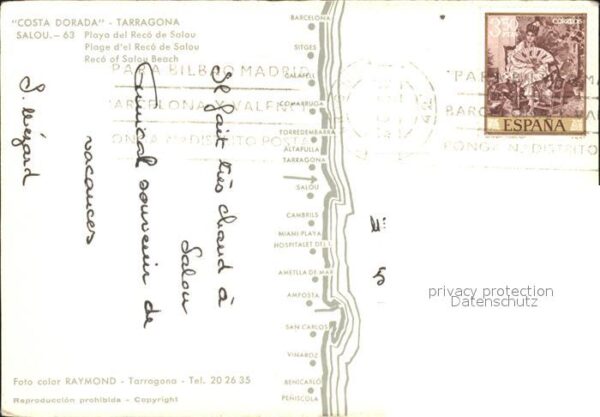 "COSTA DORADA" - TARRAGONA
SALOU. - 63 Playa del Recó de Salou
Plage d'el Recó de Salou
Recó of Salou Beach
Il fait très chaud à
Salou
Amical souvenir de
vacances
BARCELONA
SITGES
CALAFELL
COMARRUGA
TORREDEMBARRA
ALTAFULLA
TARRAGONA
SALOU
CAMBRILS
MIAMI PLAYA
HOSPITALET DEL I.
AMETLLA DE MAR
AMPOSTA
SAN CARLOS
VINAROZ
BENICARLO
PEÑISCOLA
PARA BILBAO MADRID
BARCELONA Y VALENCIA
PONGA Nº DISTRITO POSTAL
3,50 PTAS
CORREOS
ESPAÑA
PARA
BARC
PONGA Nº DISTRITO
privacy protection
Datenschutz
Foto color RAYMOND - Tarragona - Tel. 20 26 35
Reproducción prohibida - Copyright